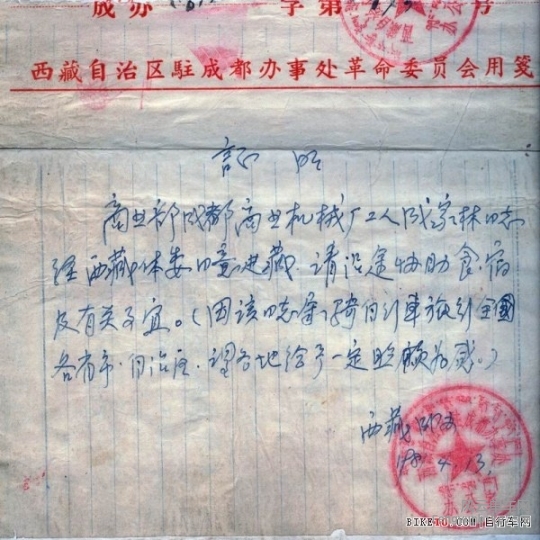 成办 字第 号
西藏自治区駐成都办事处革命委员会用笺
証 明
商业部成都商业机械厂工人成家林同志
经西藏体委同意进藏。请沿途协助食、宿
及有关事宜。(因该同志系骑自行車旅行全國
各省市、自治区,望各地给予一定照顾为感。)
西藏
4.13.
BIKETO.COM 自行车网